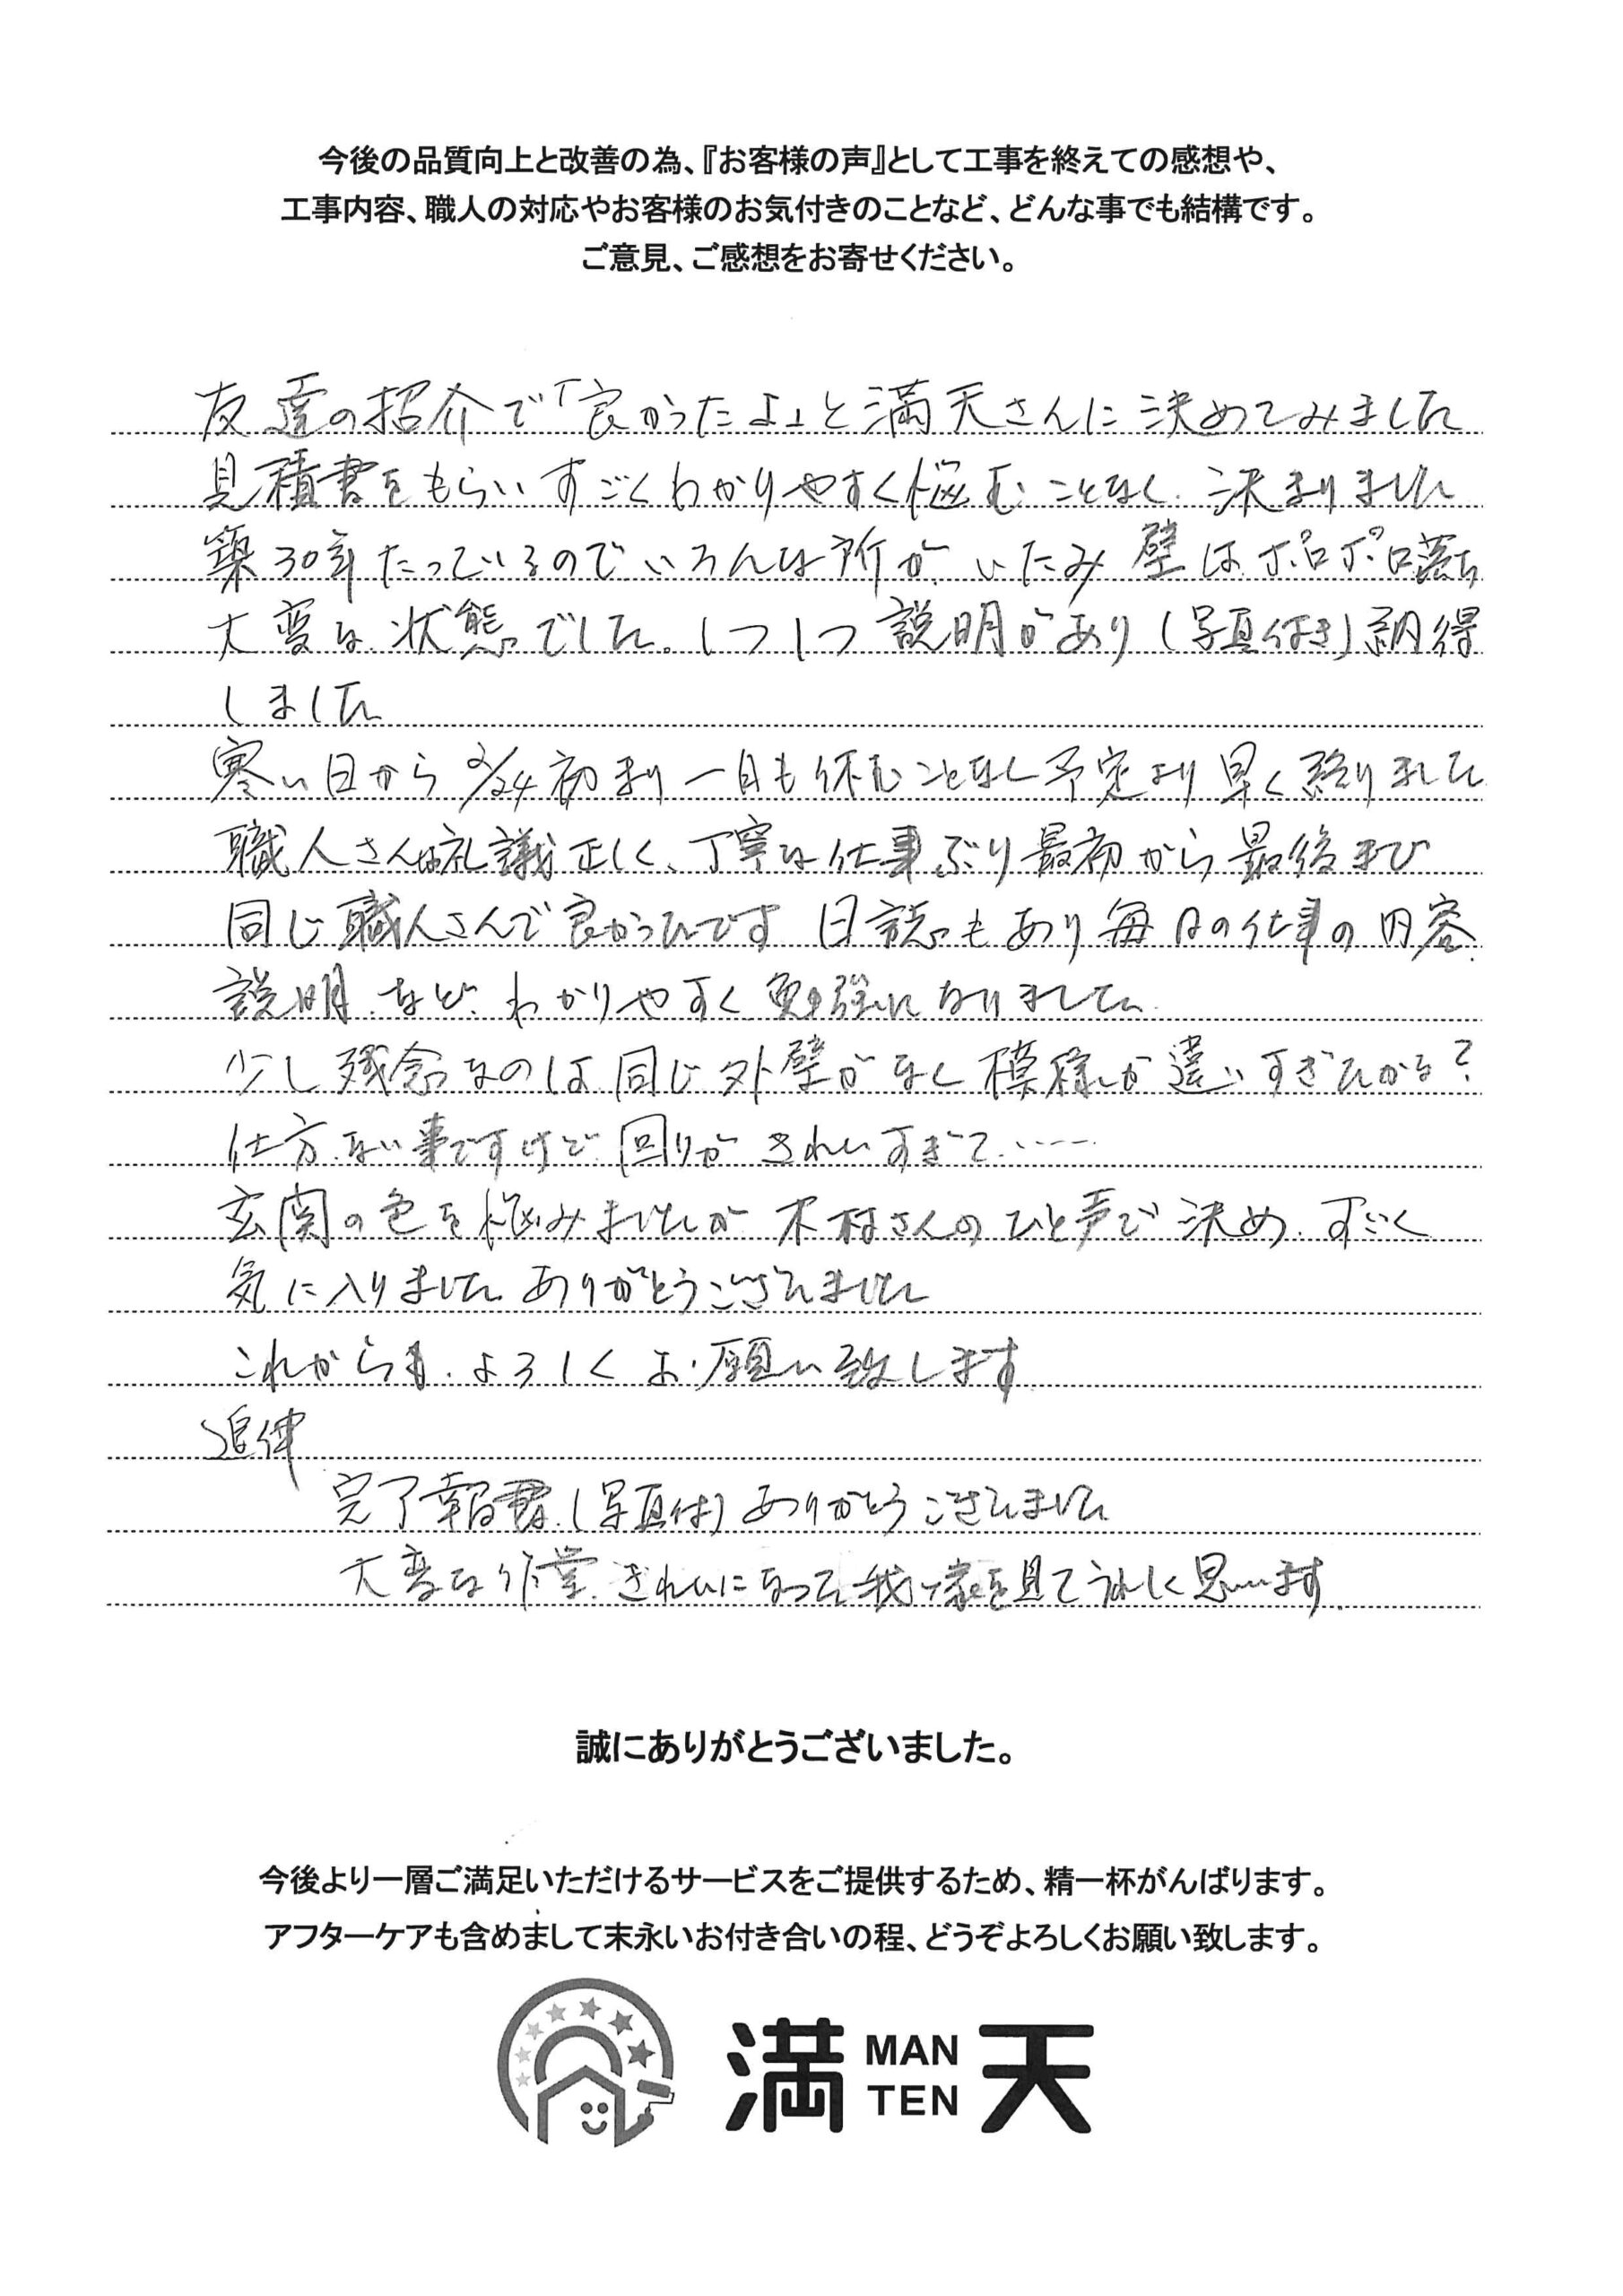 今後の品質向上と改善の為、『お客様の声』として工事を終えての感想や、
工事内容、職人の対応やお客様のお気付きのことなど、どんな事でも結構です。
ご意見、ご感想をお寄せください。
友達の紹介で「良かったよ」と満天さんに決めてみました
見積書をもらいすごくわかりやすく悩むことなく決まりました
築30年たっているのでいろんな所がいたみ壁はポロポロ落ち
大変な状態でした。1つ1つ説明があり(写真付き)納得
しました
寒い日から2/24初まり一日も休むことなく予定より早く終りました
職人さんは礼議正しく、丁寧な仕事ぶり最初から最後まで
同じ職人さんで良かったです 日誌もあり毎日の仕事の内容
説明などわかりやすく勉強になりました
少し残念なのは同じ外壁がなく模様が違いすぎたかな?
仕方ない事ですけど回りがきれいすぎて……
玄関の色を悩みましたが木村さんのひと声で決め、すごく
気に入りました ありがとうございました
これからも、よろしくお願い致します
追伸
完了報書(写真付)ありがとうございました
大変な作業 きれいになった我が家を見てうれしく思います
誠にありがとうございました。
今後より一層ご満足いただけるサービスをご提供するため、精一杯がんばります。
アフターケアも含めまして末永いお付き合いの程、どうぞよろしくお願い致します。
満 MAN TEN 天